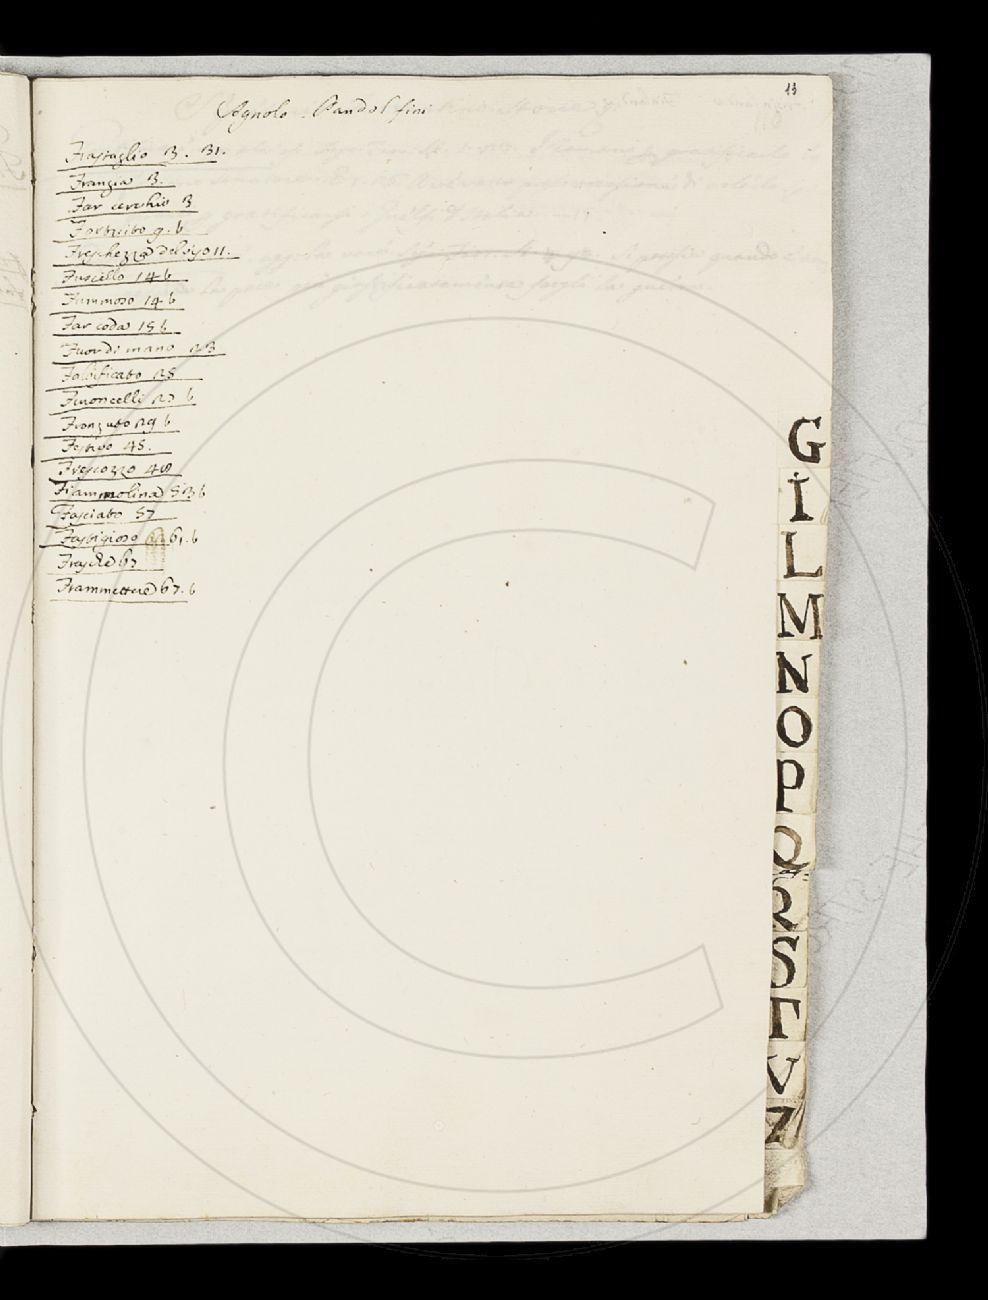 13
Agnolo Pandolfini
Frastaglio 3. 31.
Frangia 3.
Far cerchio 3
Fortuito 9. b
Freschezza del viso 11.
Fuscello 14 b
Fummoso 14. b
Far coda 15 b
Fuor di mano 23
Falsificato 25
Funoncelli 27 b
Fronzuto 29 b
Festivo 45.
Frescozzo 48
Fiammolina 53 b
Fasciato 57
Fastigioso 61. b
Frasche 67
Frammettere 67. b
G
I
L
M
N
O
P
Q
R
S
T
V
Z